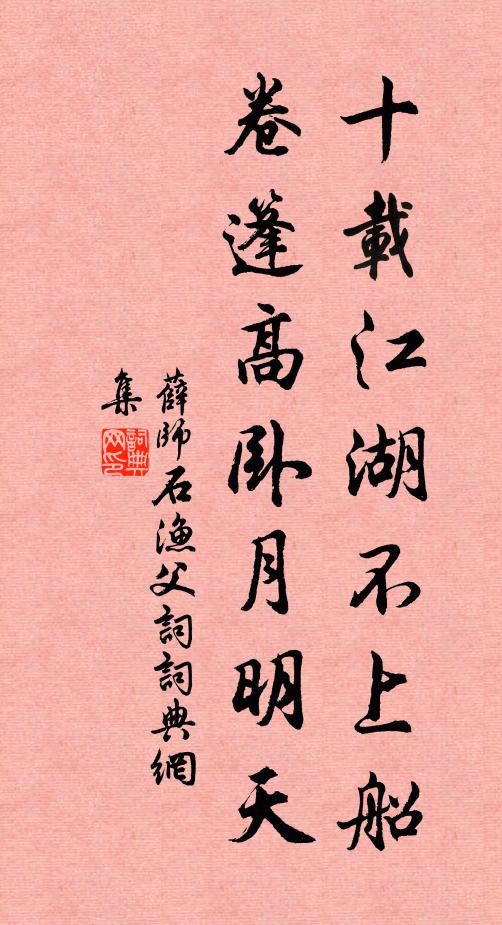 十載江湖不上船
卷篷高卧月明天
薛師石漁父詞詞典網
集
詞典
网印